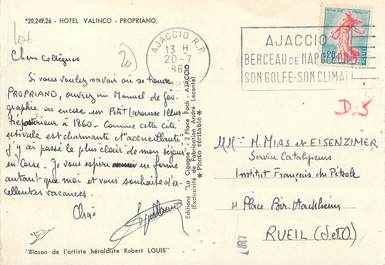 "20.249.26 - HOTEL VALINCO - PROPRIANO.
AJACCIO R.P.
13 H
20-7
AJACCIO
BERCEAU DE NAP
SON GOLFE-SON CLIMAT
Chers Collègues
Si vous voulez savoir où se trouve
PROPRIANO, ouvrez un Manuel de Géo-
graphie ou encore un Petit Larousse Illustré
postérieur à 1860. Comme cette cité
estivale est charmante et accueillante
j'y ai passé le plus clair de mon séjour
en Corse. Je vous espère en forme
autant que moi et vous souhaite d'ex-
cellentes vacances.
Ciao
"Blason de l'artiste héraldiste Robert LOUIS"
Editions "La Cigogne" - 2 Place Foch - AJACCIO
(Exclusivité de Fabrication André Leconte)
* Photo véritable *
D.S
MM. MIAS et EISENZIMER
Service Catalyseurs
Institut Français du Pétrole
Place
RUEIL (S et O)